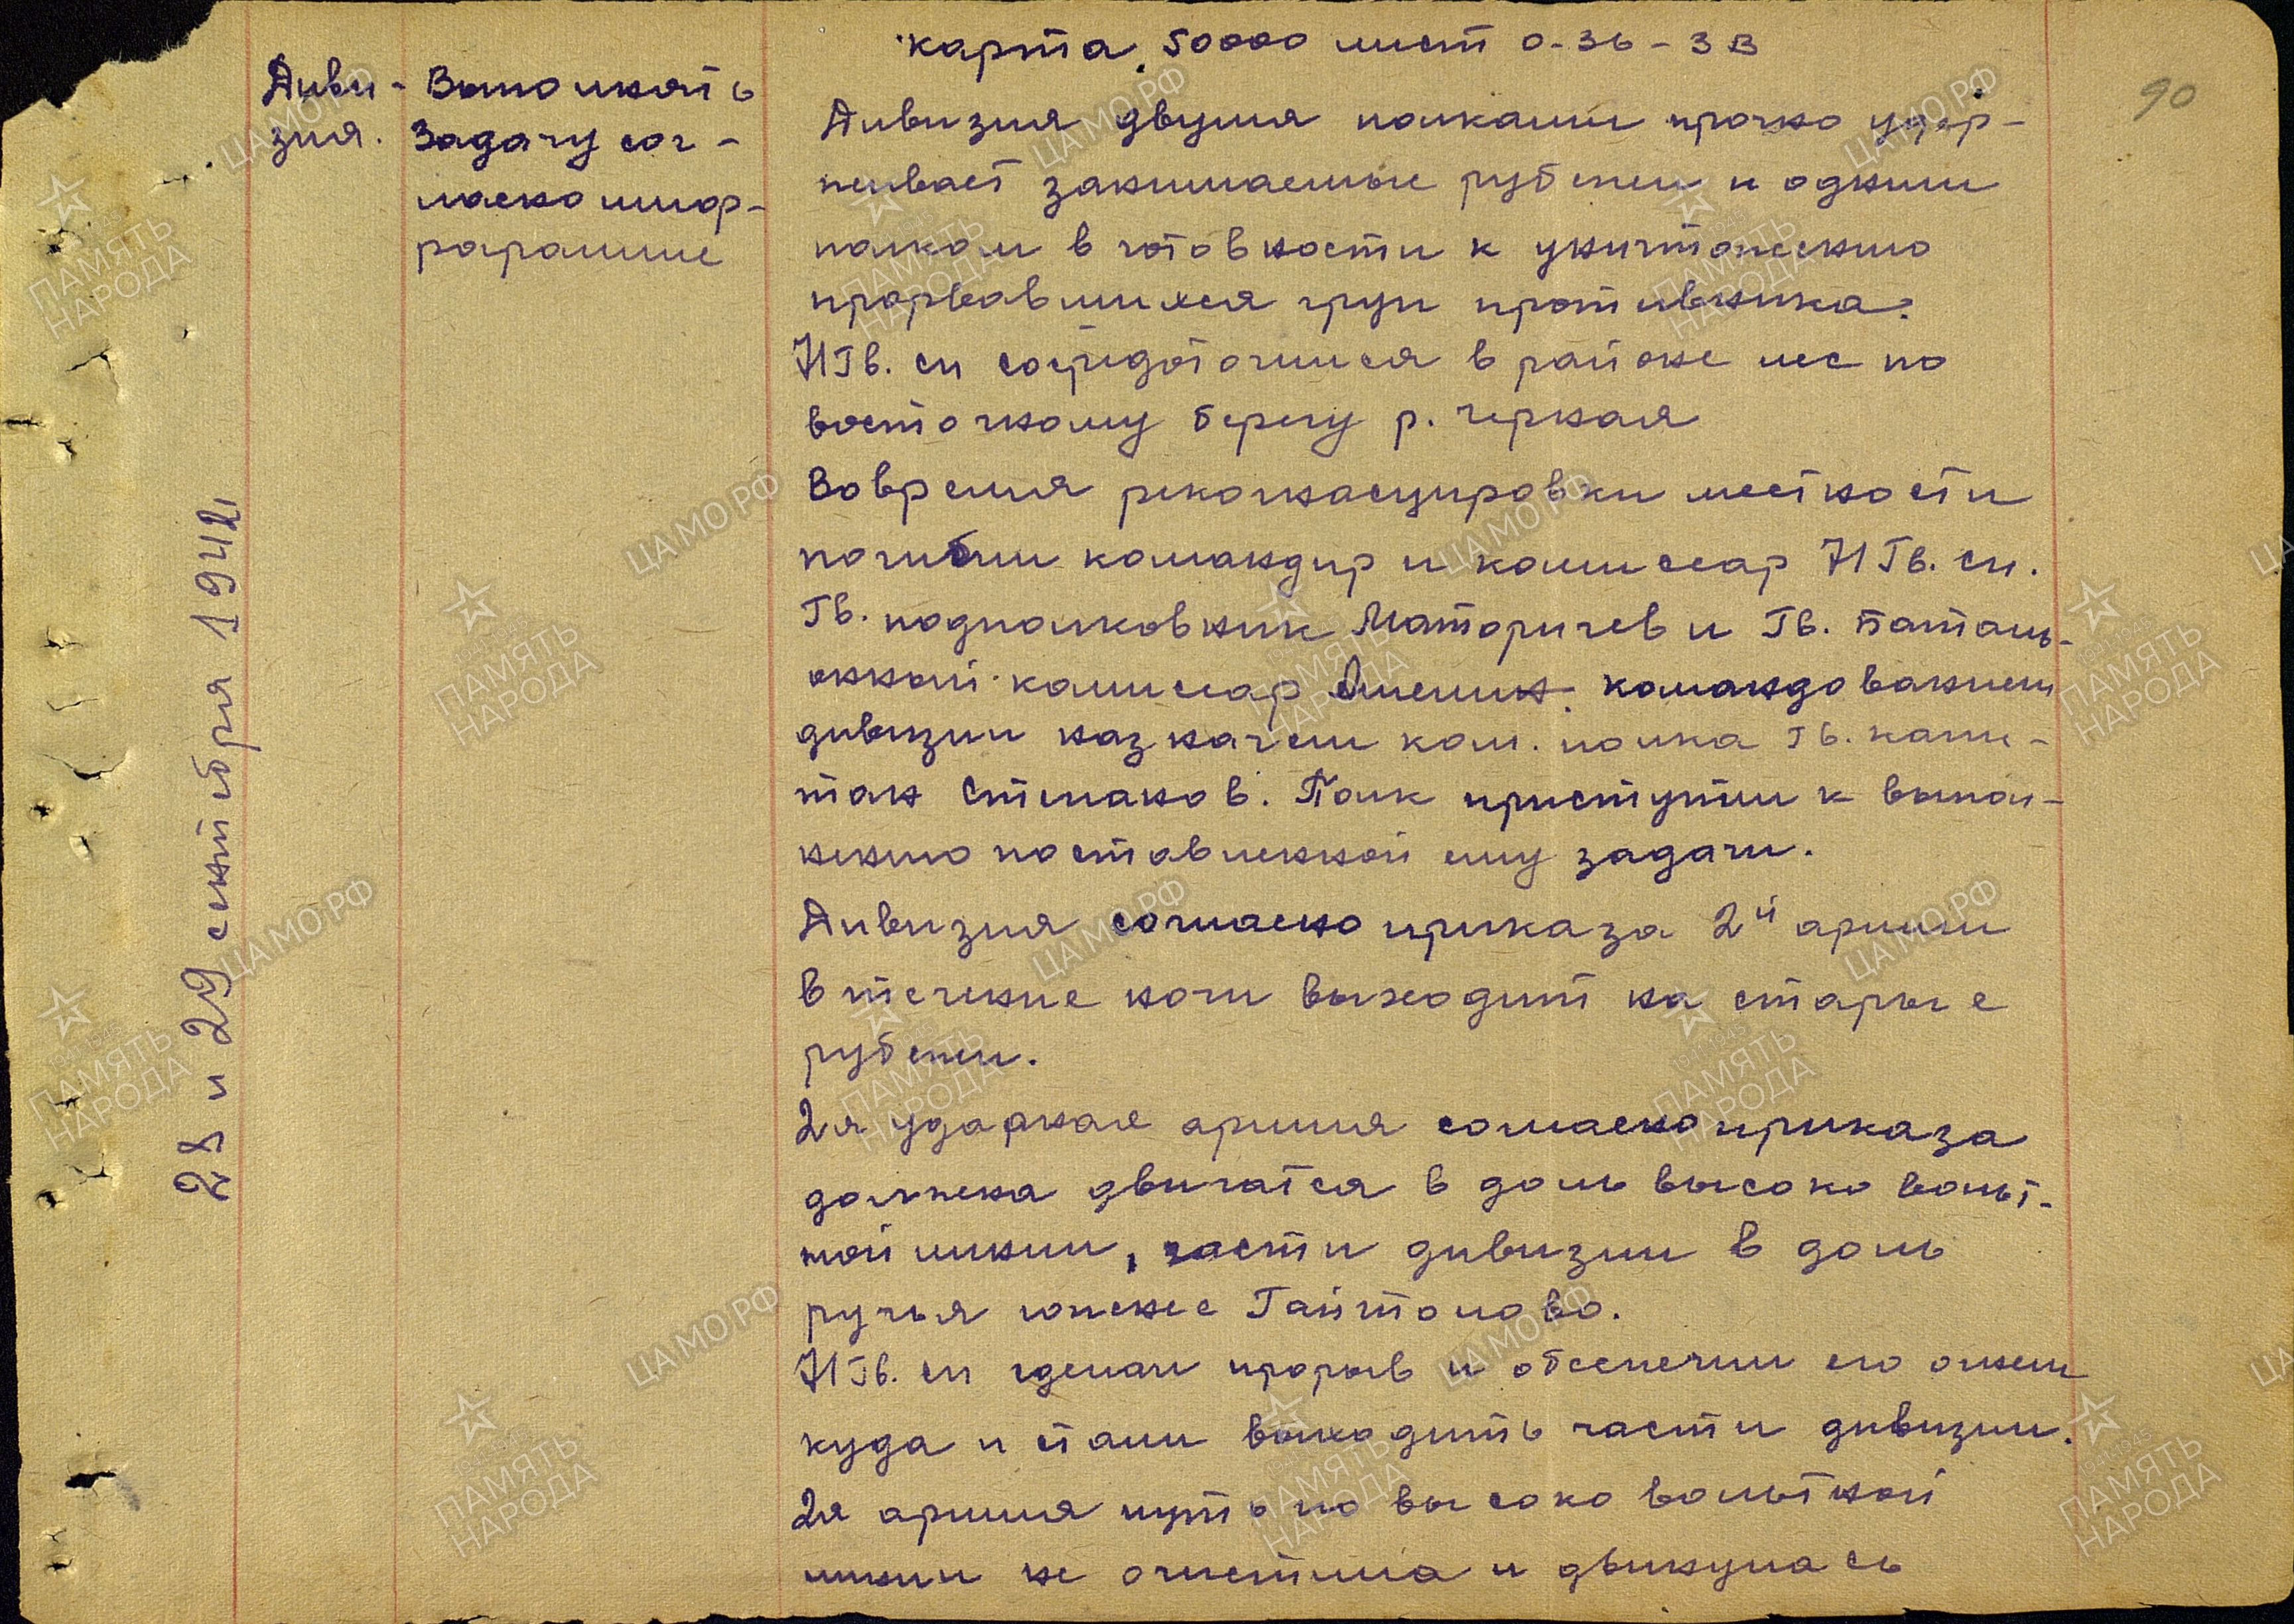 карта 50000 лист О-36-3В
90
28 и 29 сентября 1942г
Диви-
зия.
Выполнять
Задачу сог-
ласно шиф-
рограмме
Дивизия двумя полками прочно удер-
живает занимаемые рубежи и одним
полком в готовности к уничтожению
прорвавшихся груп противника.
71 Гв. сп сосредоточился в районе лес по
восточному берегу р. Черная
Вовремя реконасцировки местности
погибли командир и комиссар 71 Гв. сп.
Гв. подполковник Маторичев и Гв. Баталь-
онный комиссар командованием
дивизии назначен ком. полка Гв. капи-
тан Стшаков. Полк приступил к выпол-
нению поставленной ему задачи.
Дивизия согласно приказа 2й армии
в течение ночи выходит на старые
рубежи.
2я ударная армия согласно приказа
должена двигатся в доль высоко вольт-
ной линии, части дивизии в доль
ручья южнее Гайтолово.
71 Гв. сп сделал прорыв и обеспечил его огнем
куда и стали выходить части дивизии.
2я армия путь по высоко вольтной
линии не очистила и двинулась
ЦАМО РФ
ПАМЯТЬ НАРОДА